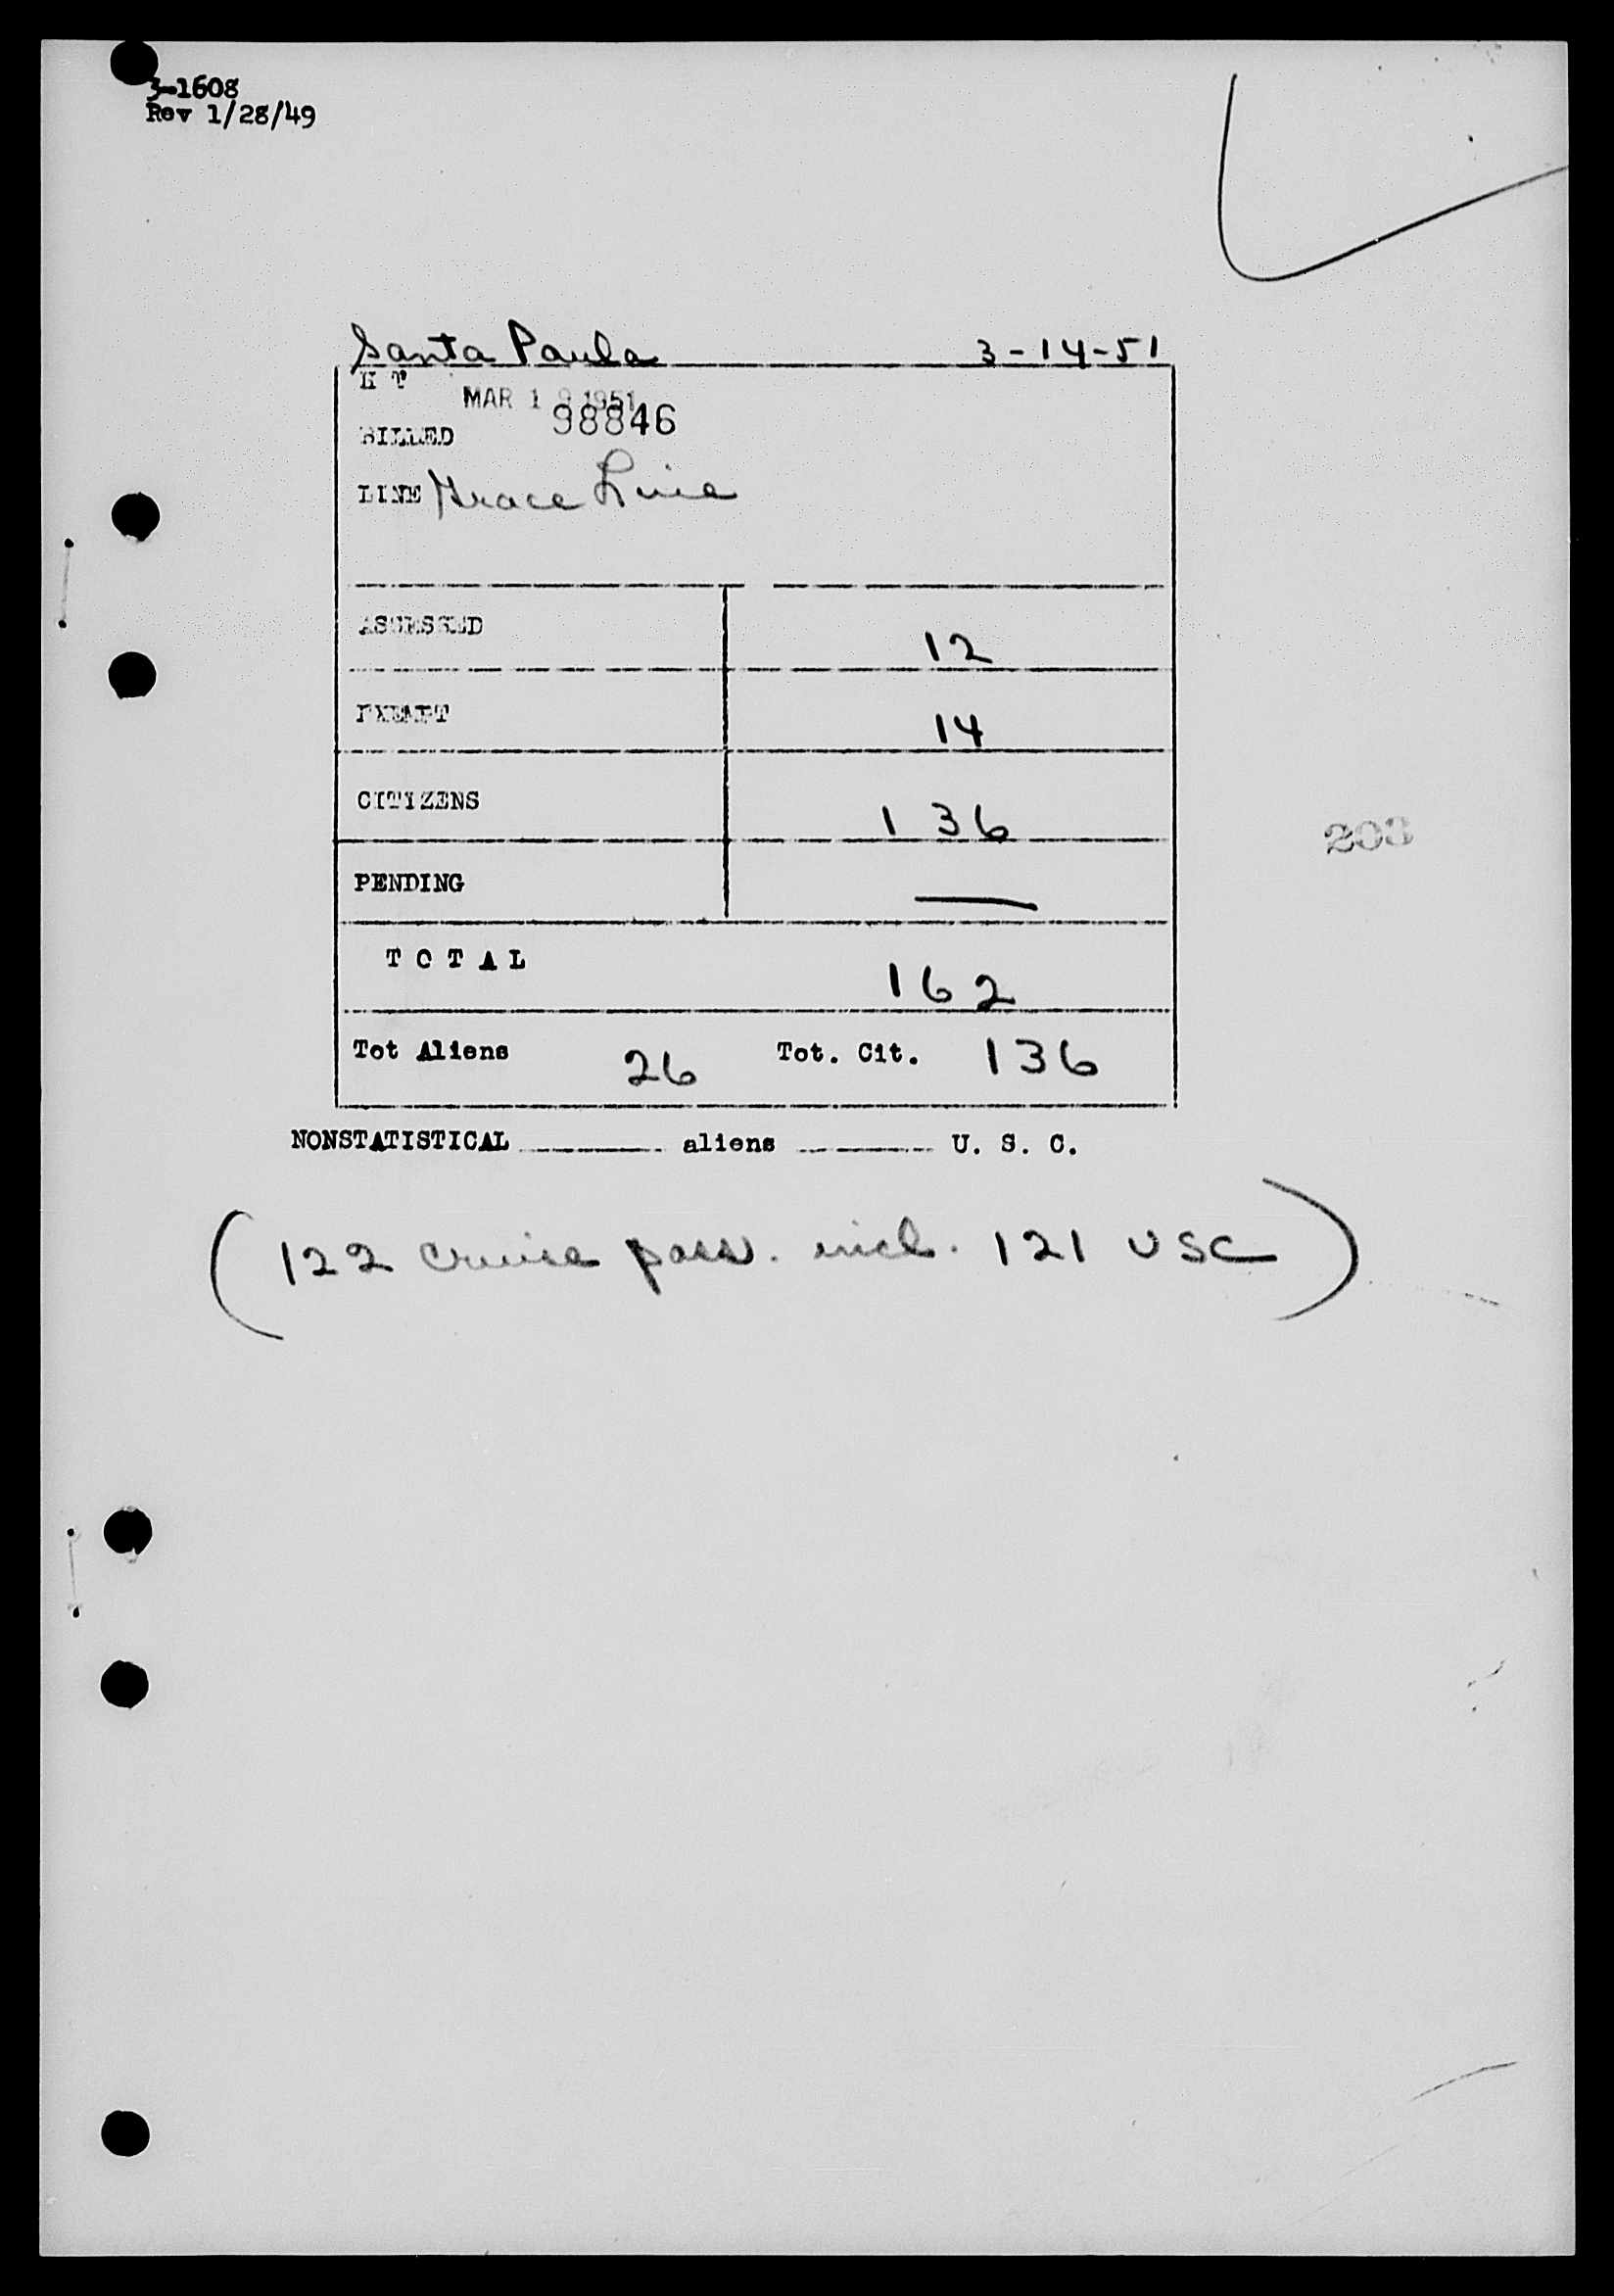 3-1608
Rev 1/28/49
Santa Paula 3-14-51
H T
MAR 1 1951
98846
BILLED
LINE Grace Line
ASSESSED 12
EXEMPT 14
CITIZENS 136
PENDING —
T O T A L 162
Tot Aliens 26 Tot. Cit. 136
NONSTATISTICAL ______ aliens ______ U. S. C.
203
(122 cruise pass. incl. 121 USC)